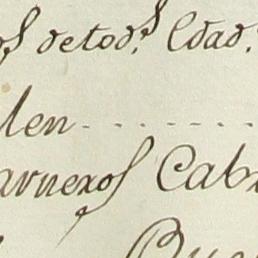 os detods. Edad.
len
arneros Cab
Bue